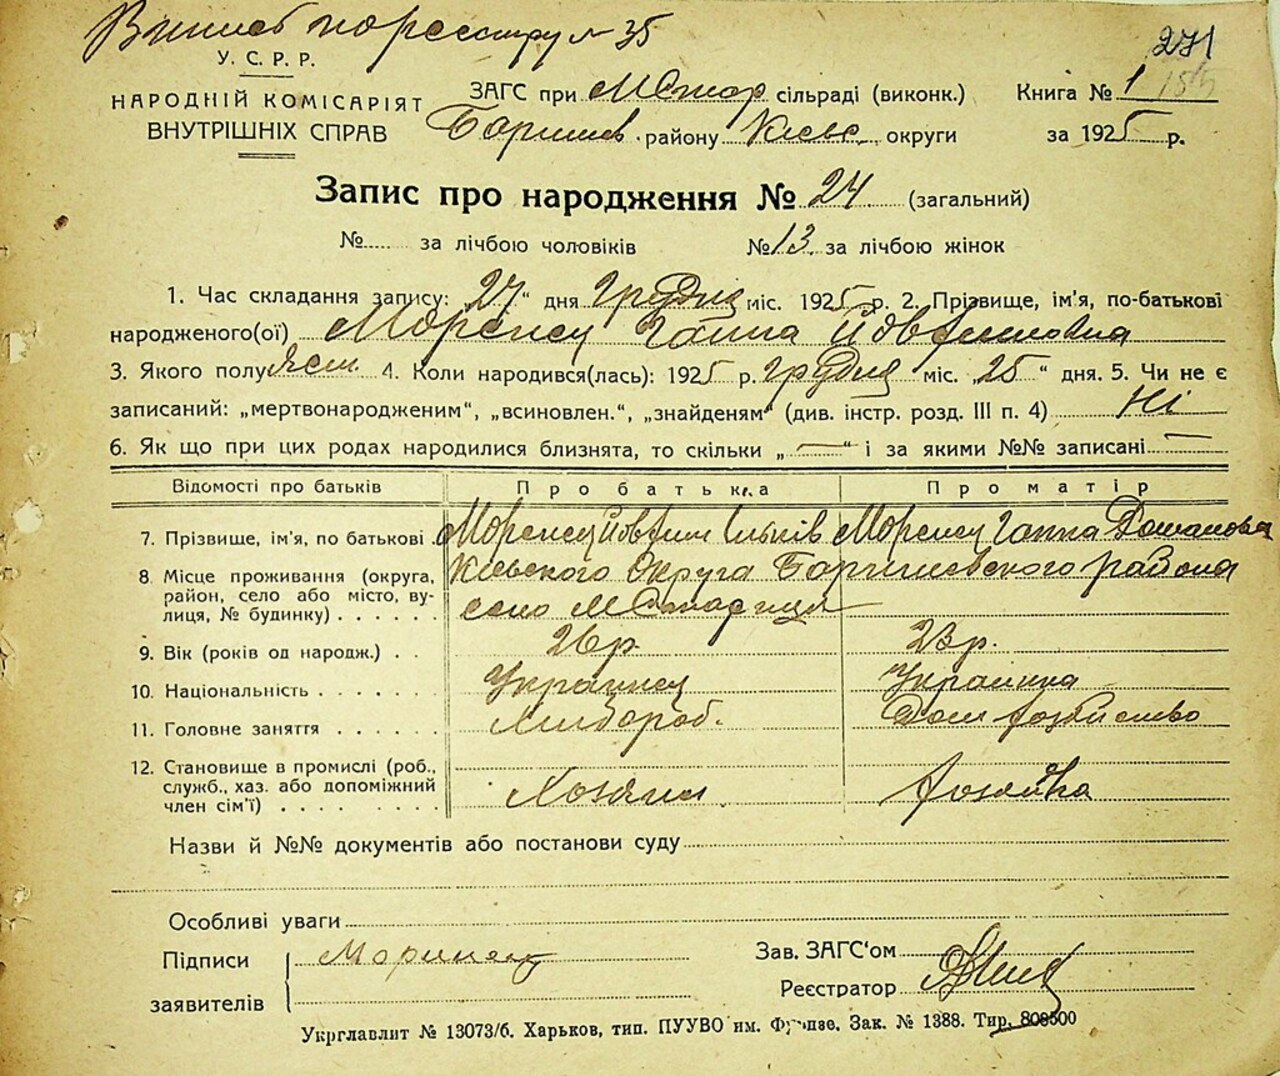 Випись по реестру № 35
271
У. С. Р. Р.
НАРОДНІЙ КОМІСАРІЯТ
ВНУТРІШНІХ СПРАВ
ЗАГС при М Стар сільраді (виконк.)
Баришев. району Київс. округи
Книга № 1
за 1925 р.
Запис про народження № 24 (загальний)
№ за лічбою чоловіків № 13 за лічбою жінок
1. Час складання запису: „27" дня Грудня міс. 1925 р. 2. Прізвище, ім'я, по-батькові
народженого(ої) Моренец Ганна Йовфимовна
3. Якого полу жен. 4. Коли народився(лась): 1925 р. Грудня міс. „25" дня. 5. Чи не є
записаний: „мертвонародженим", „всиновлен.", „знайденям" (див. інстр. розд. III п. 4) Ні
6. Як що при цих родах народилися близнята, то скільки „—" і за якими №№ записані —
Відомості про батьків Про батька Про матір
7. Прізвище, ім'я, по батькові Моренец Йовфим Ільків Моренец Ганна
8 Місце проживання (округа, Киевского Округа Баришевского района
район, село або місто, ву- село М Старица
лиця, № будинку)
9. Вік (років од народж.) 26 р. 23 р.
10. Національність Украинец Украинка
11. Головне заняття Хлибороб. Дом хозяйство
12. Становище в промислі (роб.,
служб., хаз. або допоміжний Хозяин. Хозяйка
член сім'ї)
Назви й №№ документів або постанови суду
Особливі уваги
Підписи Моринец Зав. ЗАГС'ом
заявителів Реєстратор
Укрглавлит № 13073/б. Харьков, тип. ПУУВО им. Фрунзе. Зак. № 1388. Тир. 808500